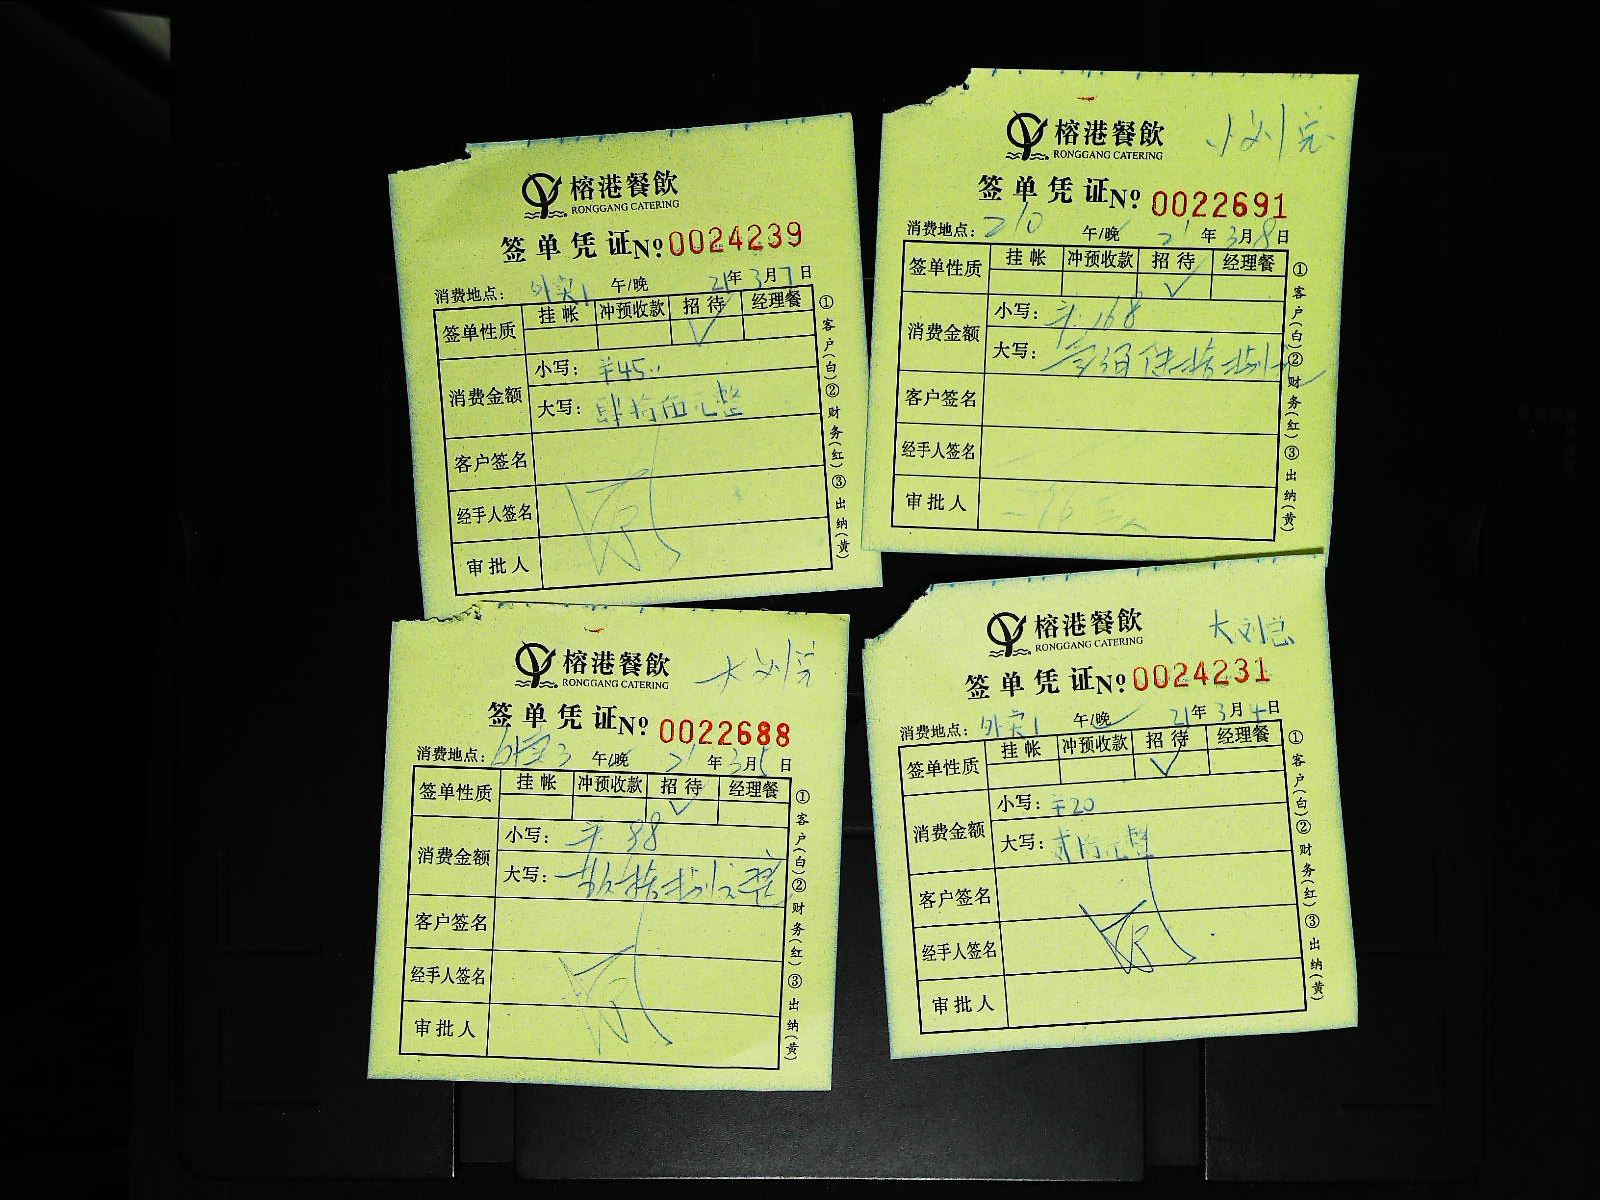 榕港餐飲
RONGGANG CATERING
签单凭证№0024239
消费地点：外卖1 午/晚 21年3月7日
签单性质 挂帐 冲预收款 招待 经理餐
✓
消费金额 小写：¥45..
大写：肆拾伍元整
客户签名
经手人签名
审批人
①客户(白)②财务(红)③出纳(黄)
榕港餐飲
RONGGANG CATERING
签单凭证№0022691
消费地点：210 午/晚 21年3月8日
签单性质 挂帐 冲预收款 招待 经理餐
✓
消费金额 小写：¥168
大写：壹佰陆拾捌元
客户签名
经手人签名
审批人
①客户(白)②财务(红)③出纳(黄)
榕港餐飲 大刘总
RONGGANG CATERING
签单凭证№0022688
消费地点：外卖3 午/晚 21年3月5日
签单性质 挂帐 冲预收款 招待 经理餐
✓
消费金额 小写：¥88
大写：捌拾捌元整
客户签名
经手人签名
审批人
①客户(白)②财务(红)③出纳(黄)
榕港餐飲 大刘总
RONGGANG CATERING
签单凭证№0024231
消费地点：外卖1 午/晚 21年3月4日
签单性质 挂帐 冲预收款 招待 经理餐
✓
消费金额 小写：¥20
大写：贰拾元整
客户签名
经手人签名
审批人
①客户(白)②财务(红)③出纳(黄)